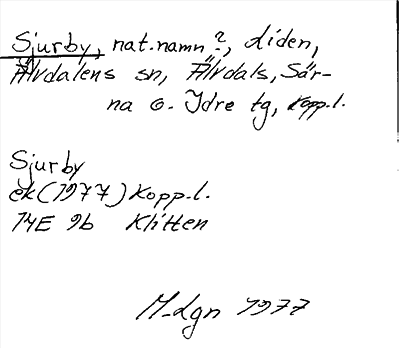 Sjurby, nat.namn?, Liden,
Älvdalens sn, Älvdals, Sär-
na o. Idre tg, Kopp.l.
Sjurby
ek (1977) Kopp.l.
14E 9b Klitten
M-Lgn 1977